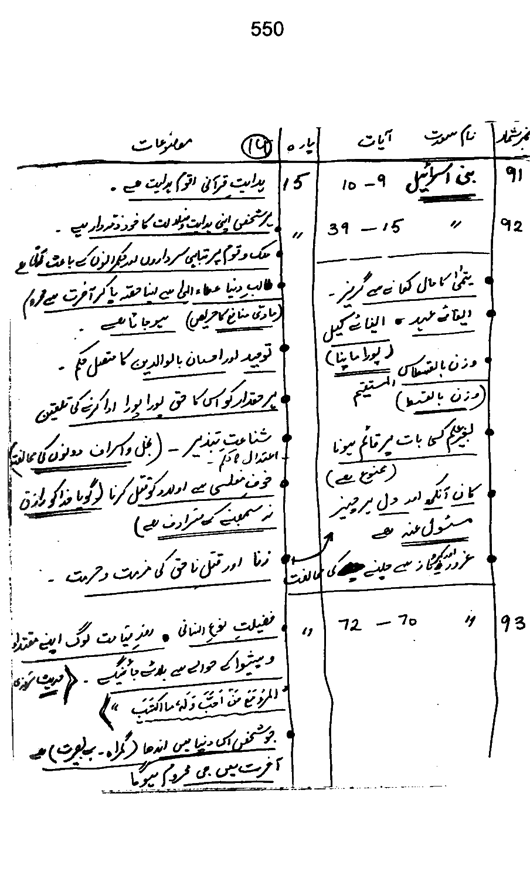 550
نمبر شمار نام سورت آیات پارہ (14) موضوعات
91 بنی اسرائیل 9 – 10 15 ہدایتِ قرآنی اقوم ہدایت ہے ۔
92 〃 15 – 39 〃 ہر شخص اپنی ہدایت و ضلالت کا خود ذمہ دار ہے ۔
ملک و قوم پر تباہی سرداروں اور حکمرانوں کے باعث آتی ہے
طالبِ دنیا عطاءِ الٰہی سے اپنا حصہ پا کر آخرت سے محروم
(مادی منافع کا حریص) ہو جاتا ہے ۔
توحید اور احسان بالوالدین کا متصل حکم ۔
ہر حقدار کو اس کا حق پورا پورا ادا کرنے کی تلقین
شناعتِ تبذیر – (بخل و اسراف دونوں کی مخالفت)
اعتدال کا حکم ۔
خوفِ مفلسی سے اولاد کو قتل کرنا (گویا خدا کو رازق
نہ سمجھنے کے مترادف ہے)
زنا اور قتلِ ناحق کی مذمت و حرمت ۔
یتیم کا مال کھانے سے گریز ۔
ایفائے عہد ۰ ایفائے کیل
(پورا ماپنا)
وزن بالقسطاس المستقیم
(وزن بالقسط)
بغیر علم کسی بات پر قائم ہونا
(ممنوع ہے)
کان آنکھ اور دل ہر چیز
مسئول عنہ ہے
غرور اور سے چلنے کی مخالفت
93 〃 70 – 72 〃 فضیلتِ نوعِ انسانی ۰ روزِ قیامت لوگ اپنے مقتداء
و پیشوا کے حوالے سے بلائے جائینگے ۔ (حدیث ترمذی
"المرء مع من احبّ و لہٗ ما اکتسب")
جو شخص اس دنیا میں اندھا (گمراہ ۔ بے بصیرت) ہے
آخرت میں بھی محروم ہوگا